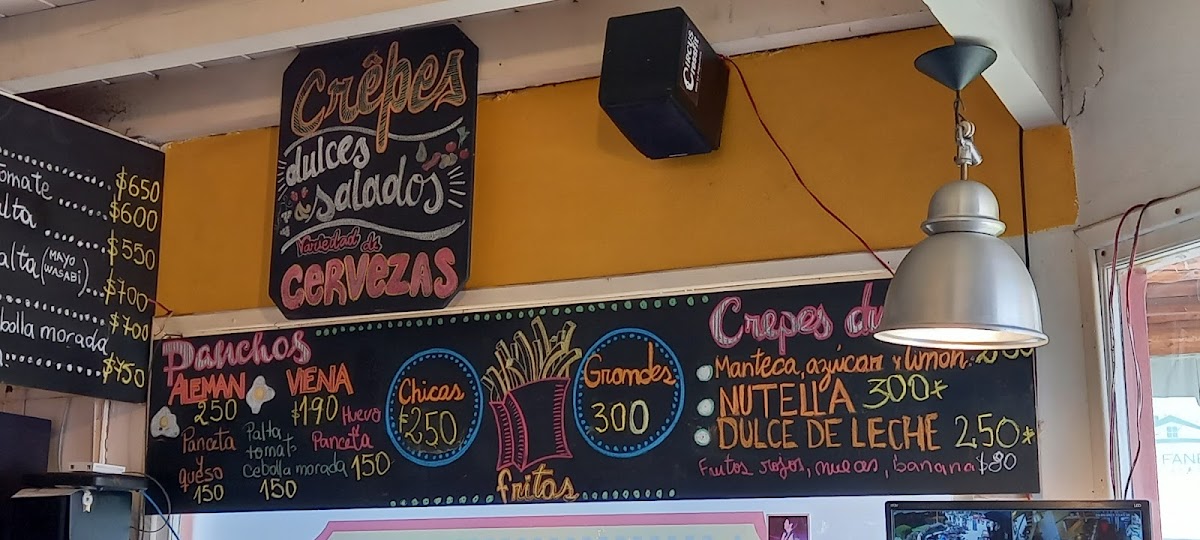 $650
omate ...... $600
alta ...... $550
alta (MAYO WASABI) ... $700
$700
ebolla morada
$750
Crêpes
dulces
salados
Variedad de
CERVEZAS
CIRCUS
CrossFit
Panchos
ALEMAN
250
Panceta
y
queso
150
VIENA
$190
Palta
tomate
cebolla morada
150
Huevo
Panceta
150
Chicas
$250
fritas
Grandes
300
Crepes du
Manteca, azúcar y limón.
NUTELLA 300*
DULCE DE LECHE 250*
Frutos rojos, nueces, banana $80
FANE